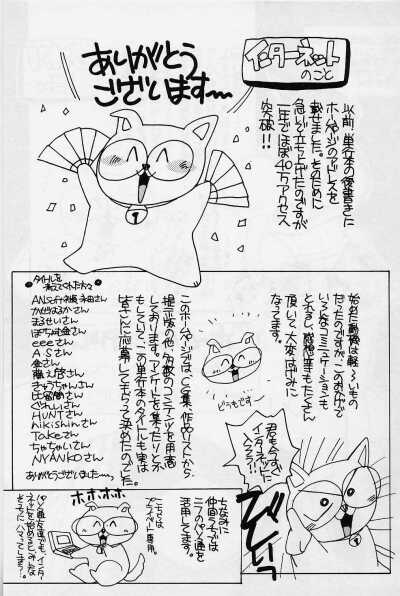 インターネット
のこと
以前、単行本の後書きに
ホームページのアドレスを
載せました。そのために
急いで立ち上げたのですが
一年でほぼ40万アクセス
突破!!
ありがとう
ございます〜〜
始めた動機は軽いもの
だったのですが、このおかげで
いろんなコミュニケーションも
とれるし、感想等もたくさん
頂いて、大変はげみに
なってます。
どうもです…
このホームページでは、CG集、作品リストから
掲示板の他、多数のコンテンツを用意
しております。アンケートを集めたりとか
もしていて、この単行本のタイトルも実は
皆さんに応募してもらって決めたのでした。
タイトルを
考えてくれた方々
かぜはるかさん
まるせいさん
eeeさん
A.Sさん
金さん
きゅうちゃんさん
HUNTさん
nikishinさん
Takeさん
ちゃちゃいさん
NYANKOさん
ありがとうございました…。
君も今すぐ
インターネットに
入ろう!!
びびしいっ
ちなみに
仲間うちでは
ニフのパソ通を
活用してます。
こっちでは
プライベート専用。
ホホホホ
パソ通友達でも、インター
ネットを始めると、みんな
そっちにハマってしまう…?